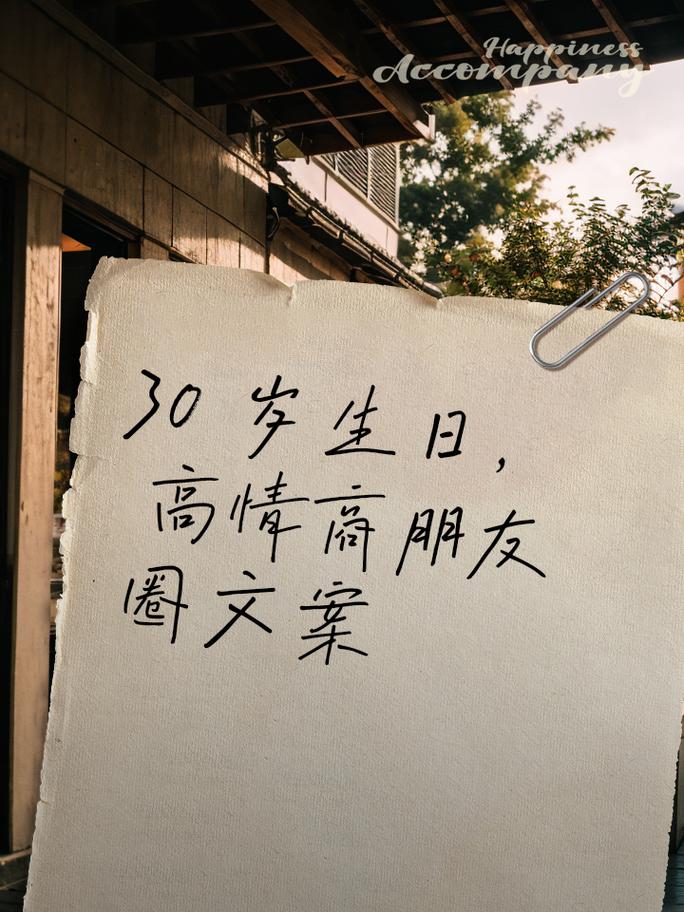 Happiness
Accompany
30岁生日,
高情商朋友
圈文案